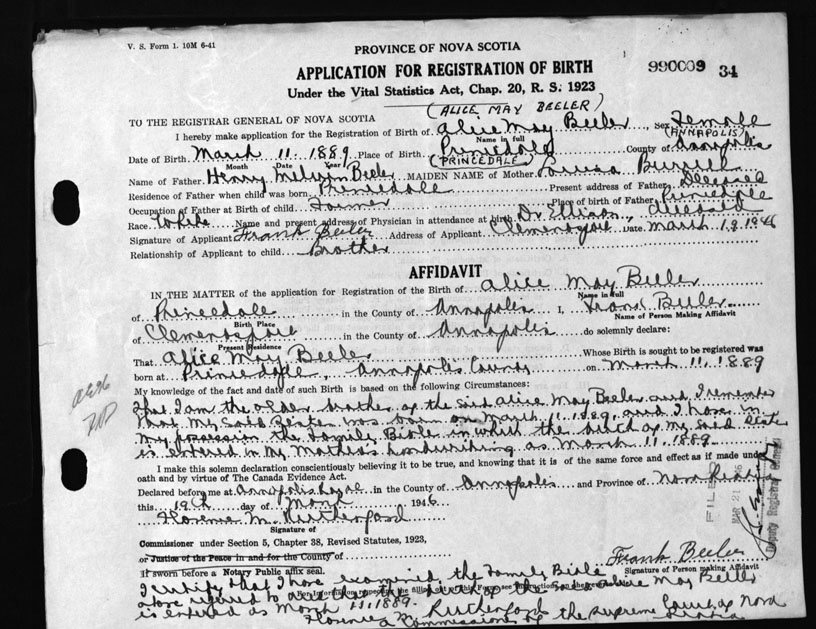 V. S. Form 1. 10M 6-41
PROVINCE OF NOVA SCOTIA
APPLICATION FOR REGISTRATION OF BIRTH
990009 34
Under the Vital Statistics Act, Chap. 20, R. S. 1923
(ALICE MAY BEELER)
TO THE REGISTRAR GENERAL OF NOVA SCOTIA
I hereby make application for the Registration of Birth of Alice May Beeler Sex Female
Name in full
(ANNAPOLIS)
Date of Birth March 11 1889 Place of Birth Princedale County of Annapolis
Month Date Year
(PRINCEDALE)
Name of Father Henry Melvin Beeler MAIDEN NAME of Mother Burrell
Residence of Father when child was born Princedale Present address of Father Deceased
Occupation of Father at Birth of child Farmer Place of birth of Father Princedale
Race White Name and present address of Physician in attendance at birth Dr. Ellison, deceased
Signature of Applicant Frank Beeler Address of Applicant Clementsport Date March 19 1946
Relationship of Applicant to child Brother
AFFIDAVIT
IN THE MATTER of the application for Registration of the Birth of Alice May Beeler
Name in full
of Princedale in the County of Annapolis I, Frank Beeler
Birth Place Name of Person Making Affidavit
of Clementsport in the County of Annapolis do solemnly declare:
Present Residence
That Alice May Beeler Whose Birth is sought to be registered was
born at Princedale, Annapolis County on March 11, 1889
My knowledge of the fact and date of such Birth is based on the following Circumstances:
That I am the older brother of the said Alice May Beeler and I remember
that my said Sister was born on March 11, 1889, and I have in
my possession the Family Bible in which the birth of my said Sister
is entered in my Mothers handwriting as March 11, 1889.
I make this solemn declaration conscientiously believing it to be true, and knowing that it is of the same force and effect as if made under
oath and by virtue of The Canada Evidence Act.
Declared before me at Annapolis Royal in the County of Annapolis and Province of Nova Scotia
this 19th day of March 1946
Florence M. Rutherford
Signature of
Commissioner under Section 5, Chapter 38, Revised Statutes, 1923,
or Justice of the Peace in and for the County of
If sworn before a Notary Public affix seal.
Frank Beeler
Signature of Person making Affidavit
FILED
MAR 21 1946
Deputy Registrar General
I certify that I have examined the Family Bible
above referred to and that the birth of the said Alice May Beeler
is entered as March 11, 1889.
Florence M. Rutherford
A Commissioner of the Supreme Court of Nova
Scotia